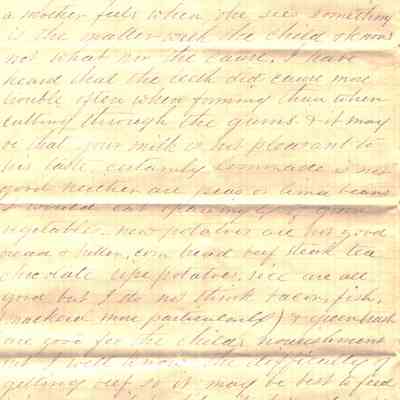 a mother feels when she sees something
is the matter with the child & knows
not what nor the cause. I have
heard that the teeth did cause more
trouble often when forming than when
cutting through the gums. & it may
be that your milk is not pleasant to
his taste. certainly lemonade is not
good neither are peas or lima beans
I would eat sparingly of green
vegetables. new potatoes are not good
cream & butter, corn bread beef steak tea
chocolate ripe potatoes, rice are all
good but I do not think bacon, fish,
(mackerel more particularly) &
are good for the childs nourishment
but I well know the difficulty of
getting beef so it may be best to feed